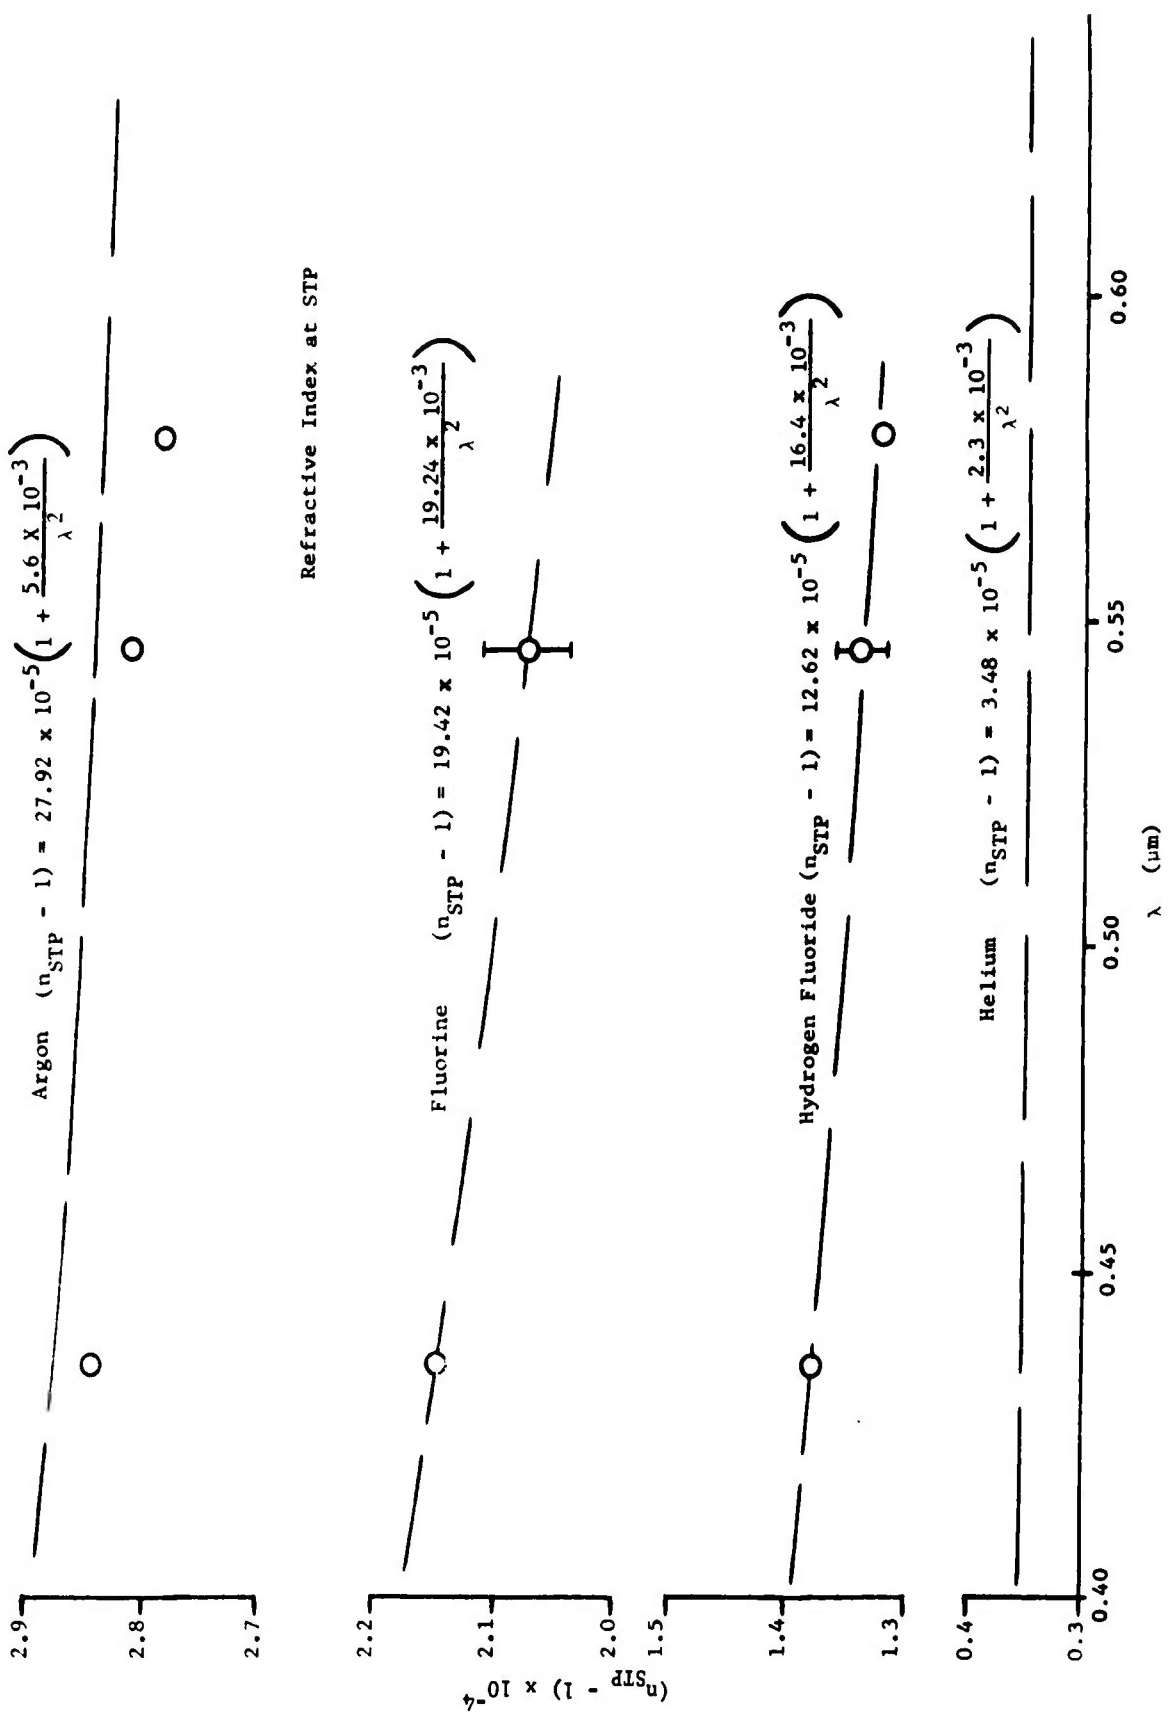 Argon (nSTP - 1) = 27.92 x 10^-5 (1 + 5.6 X 10^-3 / λ^2)
Refractive Index at STP
Fluorine (nSTP - 1) = 19.42 x 10^-5 (1 + 19.24 x 10^-3 / λ^2)
Hydrogen Fluoride (nSTP - 1) = 12.62 x 10^-5 (1 + 16.4 x 10^-3 / λ^2)
Helium (nSTP - 1) = 3.48 x 10^-5 (1 + 2.3 x 10^-3 / λ^2)
(nSTP - 1) x 10^-4
2.9
2.8
2.7
2.2
2.1
2.0
1.5
1.4
1.3
0.4
0.3
0.40
0.45
0.50
0.55
0.60
λ (μm)